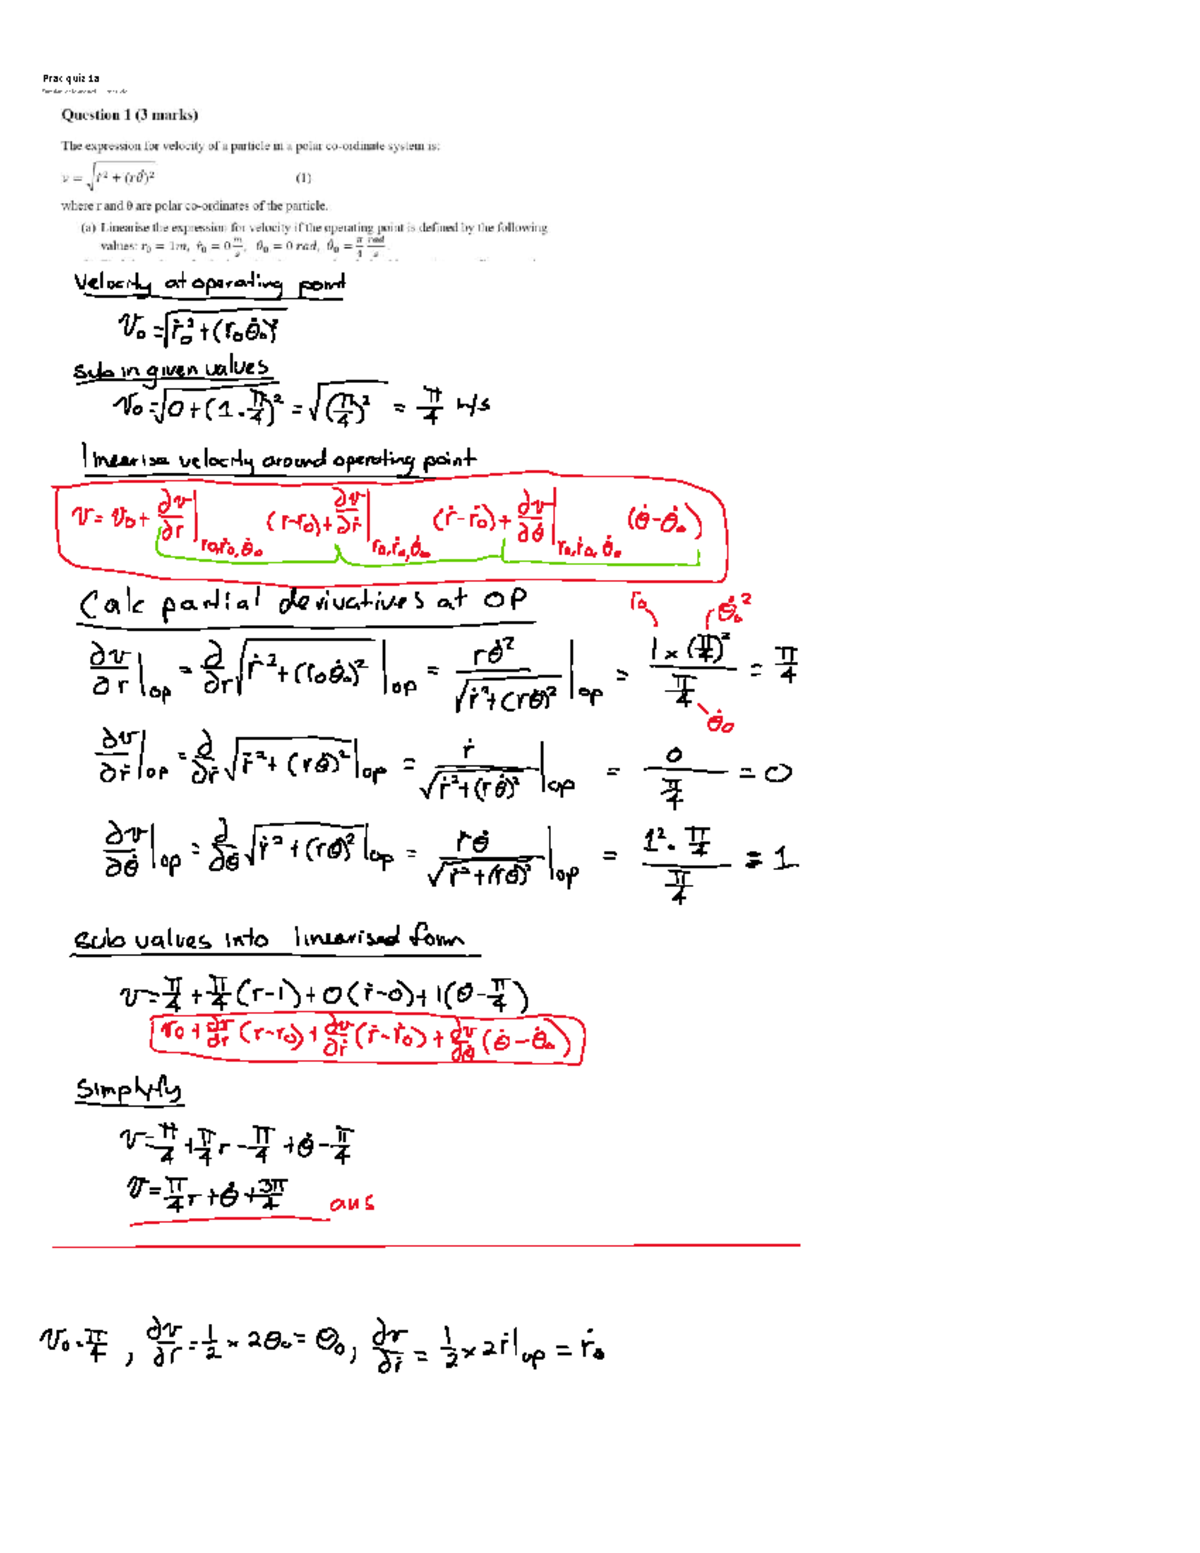 Prac quiz 1a
Question 1 (3 marks)
The expression for velocity of a particle in a polar co-ordinate system is:
v = √(ṙ² + (rθ̇)²) (1)
where r and θ are polar co-ordinates of the particle.
(a) Linearise the expression for velocity if the operating point is defined by the following
values: r₀ = 1m, ṙ₀ = 0 m/s, θ₀ = 0 rad, θ̇₀ = π/4 rad/s.
Velocity at operating point
v₀ = √(ṙ₀² + (r₀θ̇₀)²)
Sub in given values
v₀ = √(0 + (1 · π/4)²) = √((π/4)²) = π/4 m/s
linearise velocity around operating point
v = v₀ + ∂v/∂r |r₀,ṙ₀,θ̇₀ (r-r₀) + ∂v/∂ṙ |r₀,ṙ₀,θ̇₀ (ṙ-ṙ₀) + ∂v/∂θ̇ |r₀,ṙ₀,θ̇₀ (θ̇-θ̇₀)
Calc partial derivatives at OP
r₀ θ̇₀²
∂v/∂r |op = ∂/∂r √(ṙ² + (r₀θ̇₀)²) |op = rθ̇²/√(ṙ² + (rθ̇)²) |op = 1 × (π/4)² / (π/4) = π/4
θ̇₀
∂v/∂ṙ |op = ∂/∂ṙ √(ṙ² + (rθ̇)²) |op = ṙ/√(ṙ² + (rθ̇)²) |op = 0/(π/4) = 0
∂v/∂θ̇ |op = ∂/∂θ̇ √(ṙ² + (rθ̇)²) |op = rθ̇/√(ṙ² + (rθ̇)²) |op = 1² · π/4 / (π/4) = 1
Sub values into linearised form
v = π/4 + π/4 (r-1) + 0(ṙ-0) + 1(θ̇ - π/4)
v₀ + ∂v/∂r (r-r₀) + ∂v/∂ṙ (ṙ-ṙ₀) + ∂v/∂θ̇ (θ̇-θ̇₀)
Simplify
v = π/4 + π/4 r - π/4 + θ̇ - π/4
v = π/4 r + θ̇ + 3π/4 ans
v₀ = π/4 , ∂v/∂r = 1/2 × 2θ₀ = θ₀ , ∂v/∂ṙ = 1/2 × 2ṙ |op = ṙ₀